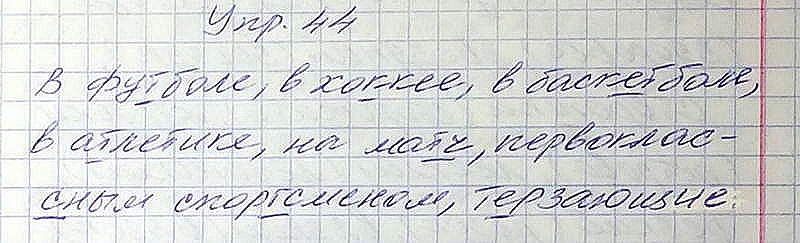 Упр. 44
в футболе, в хоккее, в баскетболе,
в атлетике, на матч, первоклас-
сным спортсменом, терзающие.